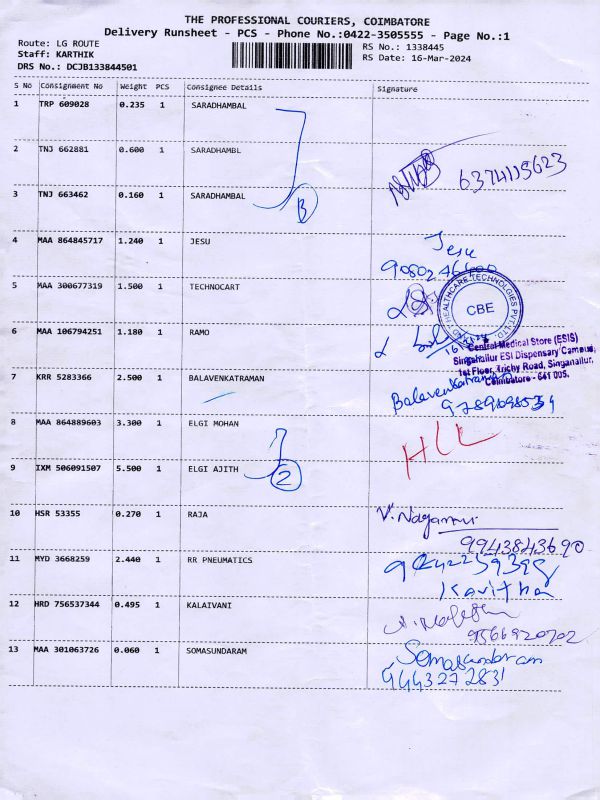 THE PROFESSIONAL COURIERS, COIMBATORE
Delivery Runsheet - PCS - Phone No.:0422-3505555 - Page No.:1
Route: LG ROUTE
Staff: KARTHIK
DRS No.: DCJB133844501
RS No.: 1338445
RS Date: 16-Mar-2024
S No Consignment No Weight PCS Consignee Details Signature
1 TRP 609028 0.235 1 SARADHAMBAL
2 TNJ 662881 0.600 1 SARADHAMBL
6374115623
3 TNJ 663462 0.160 1 SARADHAMBAL
3
4 MAA 864845717 1.240 1 JESU
Jesu
9080246600
5 MAA 300677319 1.500 1 TECHNOCART
HEALTHCARE TECHNOLGIES PVT LTD
CBE
6 MAA 106794251 1.180 1 RAMO
Central Medical Store (ESIS)
Singanallur ESI Dispensary Campus,
1st Floor, Trichy Road, Singanallur,
Coimbatore - 641 005.
7 KRR 5283366 2.500 1 BALAVENKATRAMAN
Balavenkatraman
8 MAA 864889603 3.300 1 ELGI MOHAN
HLL
9 IXM 506091507 5.500 1 ELGI AJITH
2
10 HSR 53355 0.270 1 RAJA
9943843690
11 MYD 3668259 2.440 1 RR PNEUMATICS
Kavitha
12 HRD 756537344 0.495 1 KALAIVANI
9566920702
13 MAA 301063726 0.060 1 SOMASUNDARAM
Somasundaram
9443272831